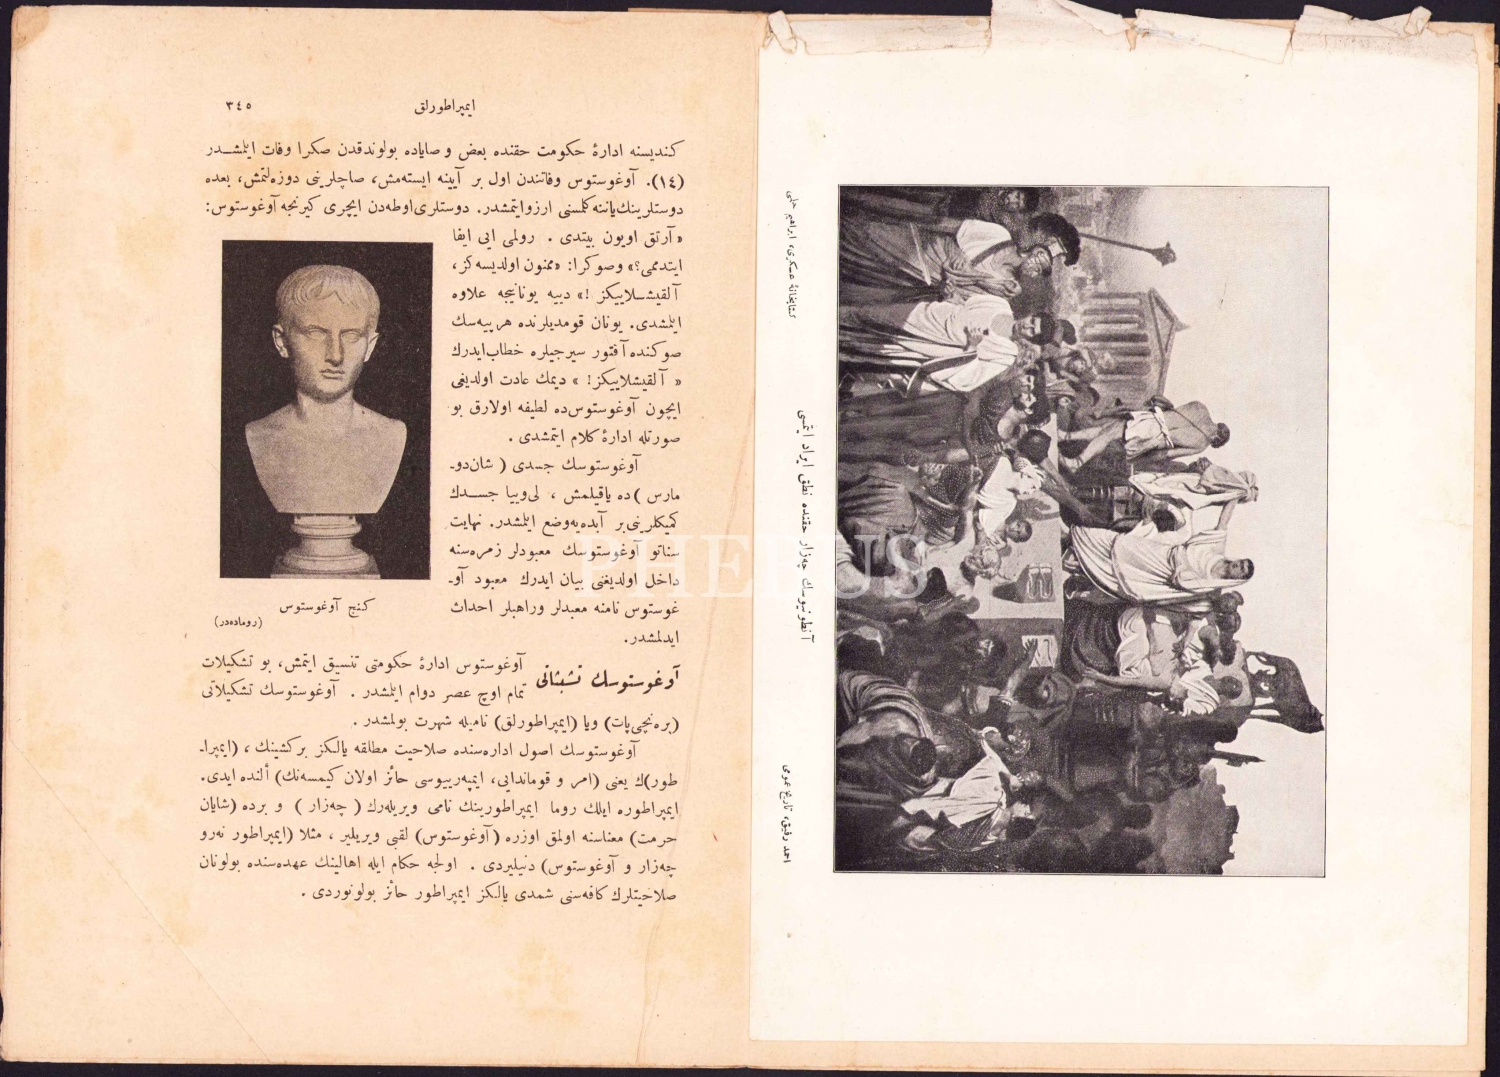 ایمپراطورلق
٣٤٥
كندیسنه ادارۀ حكومت حقنده بعض وصایاده بولوندقدن صكرا وفات ایلمشـدر
(١٤). آوغوستوس وفاتندن اول بر آیینه ایسته‌مش، صاچلرینی دوزه‌لتمش، بعده
دوستلرینك یاننه كلمسنی آرزو ایتمشدر. دوستلری اوطه‌دن ایچری كیرنجه آوغوستوس:
« آرتق اویون بیتدی . رولمی ایی ایفا
ایتدممی؟» وصوكرا: «ممنون اولدیسه‌كز،
آلقیشـلاییكز !» دییه یونانیجه علاوه
ایلمشدی. یونان قومدیلرنده هر پیه‌سك
صوكنده آقتور سیرجیلره خطاب ایدرك
« آلقیشلاییكز! » دیمك عادت اولدیغی
ایچون آوغوستوس‌ده لطیفه اولارق بو
صورتله ادارۀ كلام ایتمشدی .
آوغوستوسك جسدی ( شان‌دو-
مارس )ده یاقیلمش ، لی‌وییا جسـدك
كمیكلرینی بر آبده‌یه وضع ایلمشدر. نهایت
سناتو آوغوستوسك معبودلر زمره‌سنه
داخل اولدیغنی بیان ایدرك معبود آو-
غوستوس نامنه معبدلر و راهبلر احداث
ایدلمشدر.
كنج آوغوستوس
(روماده‌در)
آوغوستوسك تشبثاتی
آوغوستوس ادارۀ حكومتی تنسیق ایتمش، بو تشكیلات
تمام اوچ عصر دوام ایلمشدر . آوغوستوسك تشكیلاتی
(بره‌نچی‌پات) ویا (ایمپراطورلق) نامیله شهرت بولمشدر .
آوغوستوسك اصول اداره‌سنده صلاحیت مطلقه یالكز بر كشینك ، (ایمپرا-
طور)ك یعنی (امر و قوماندایی، ایمپه‌رییوسی حائز اولان كیمسه‌نك) ألنده ایدی.
ایمپراطوره ایلك روما ایمپراطورینك نامی ویریله‌رك ( چه‌زار ) و برده (شایان
حرمت) معناسنه اولمق اوزره (آوغوستوس) لقبی ویریلیر ، مثلا (ایمپراطور نه‌رو
چه‌زار و آوغوستوس) دنیلیردی . اولجه حكام ایله اهالینك عهده‌سنده بولونان
صلاحیتلرك كافه‌سنی شمدی یالكز ایمپراطور حائز بولونوردی .
كتابخانۀ عسكری، ابراهیم حلمی
آنطونیوسك چه‌زار حقنده نطق ایراد ایتمسی
احمد رفیق، تاریخ عمومی
PHEBUS